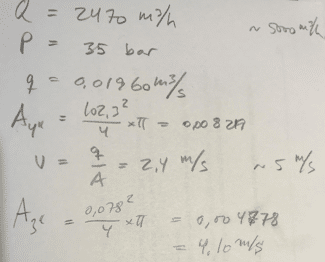 Q = 2470 m³/h ~ 5000 m³/h
P = 35 bar
q = 0,01960 m³/s
A₄" = 102,3²/4 × π = 0,00821
v = q/A = 2,4 m/s ~ 5 m/s
A₃" = 0,078²/4 × π = 0,004778
= 4,10 m/s